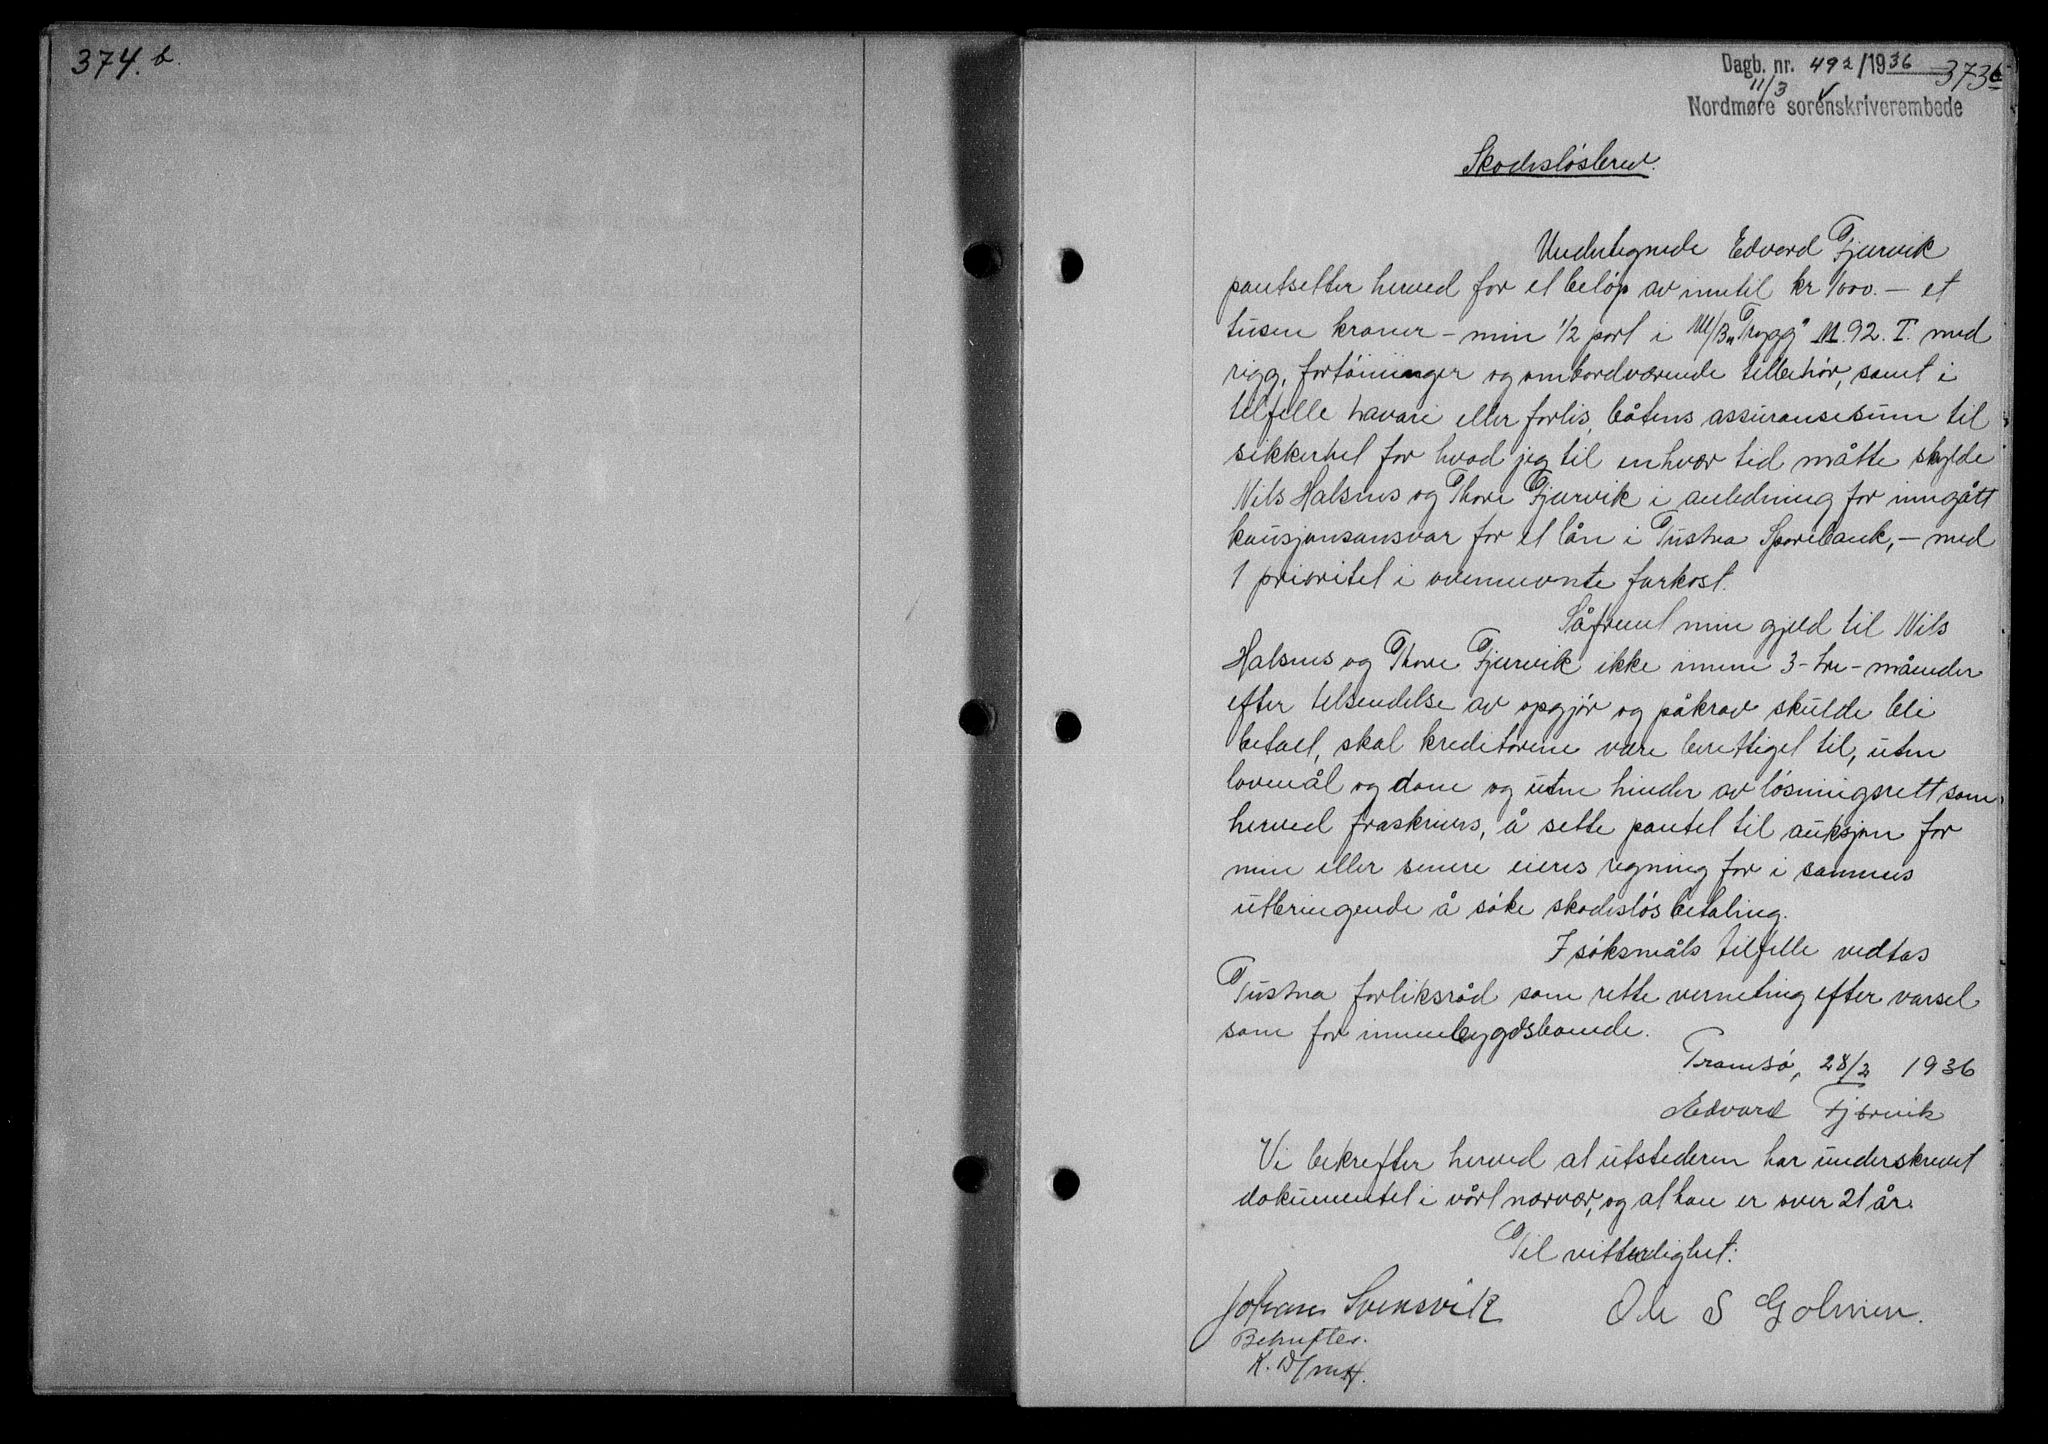 374.b.
Dagb. nr. 492/1936 373b
11/3
Nordmøre sorenskriverembede
Skadesløsbrev.
Undertegnede Edvard Fjærvik
pantsetter herved for et beløp av inntil kr 1000.- et
tusen kroner - min 1/2 part i M/B „Trygg" M.92.T. med
rigg, fortøininger og ombordværende tilbehør, samt i
tilfelle havari eller forlis, båtens assuransesum til
sikkerhet for hvad jeg til enhver tid måtte skylde
Nils Halsnes og Thore Fjærvik i anledning for inngått
kausjonsansvar for et lån i Tustna Sparebank, - med
1 prioritet i ovennevnte farkost.
Såfremt min gjeld til Nils
Halsnes og Thore Fjærvik ikke innen 3 - tre - måneder
efter tilsendelse av opgjør og påkrav skulde bli
betalt, skal kreditorene være berettiget til, uten
lovmål og dom og uten hinder av løsningsrett som
herved fraskrives, å sette pantet til auksjon for
min eller senere eieres regning for i sammes
utbringende å søke skadesløs betaling.
I søksmåls tilfelle vedtas
Tustna forliksråd som rette verneting efter varsel
som for innenbygdsboende.
Tromsø, 28/2 1936
Edvard Fjærvik
Vi bekrefter herved at utstederen har underskrevet
dokumentet i vårt nærvær, og at han er over 21 år.
Til vitterlighet:
Johan Svensvik Ole S Golmen.
Bekreftes.